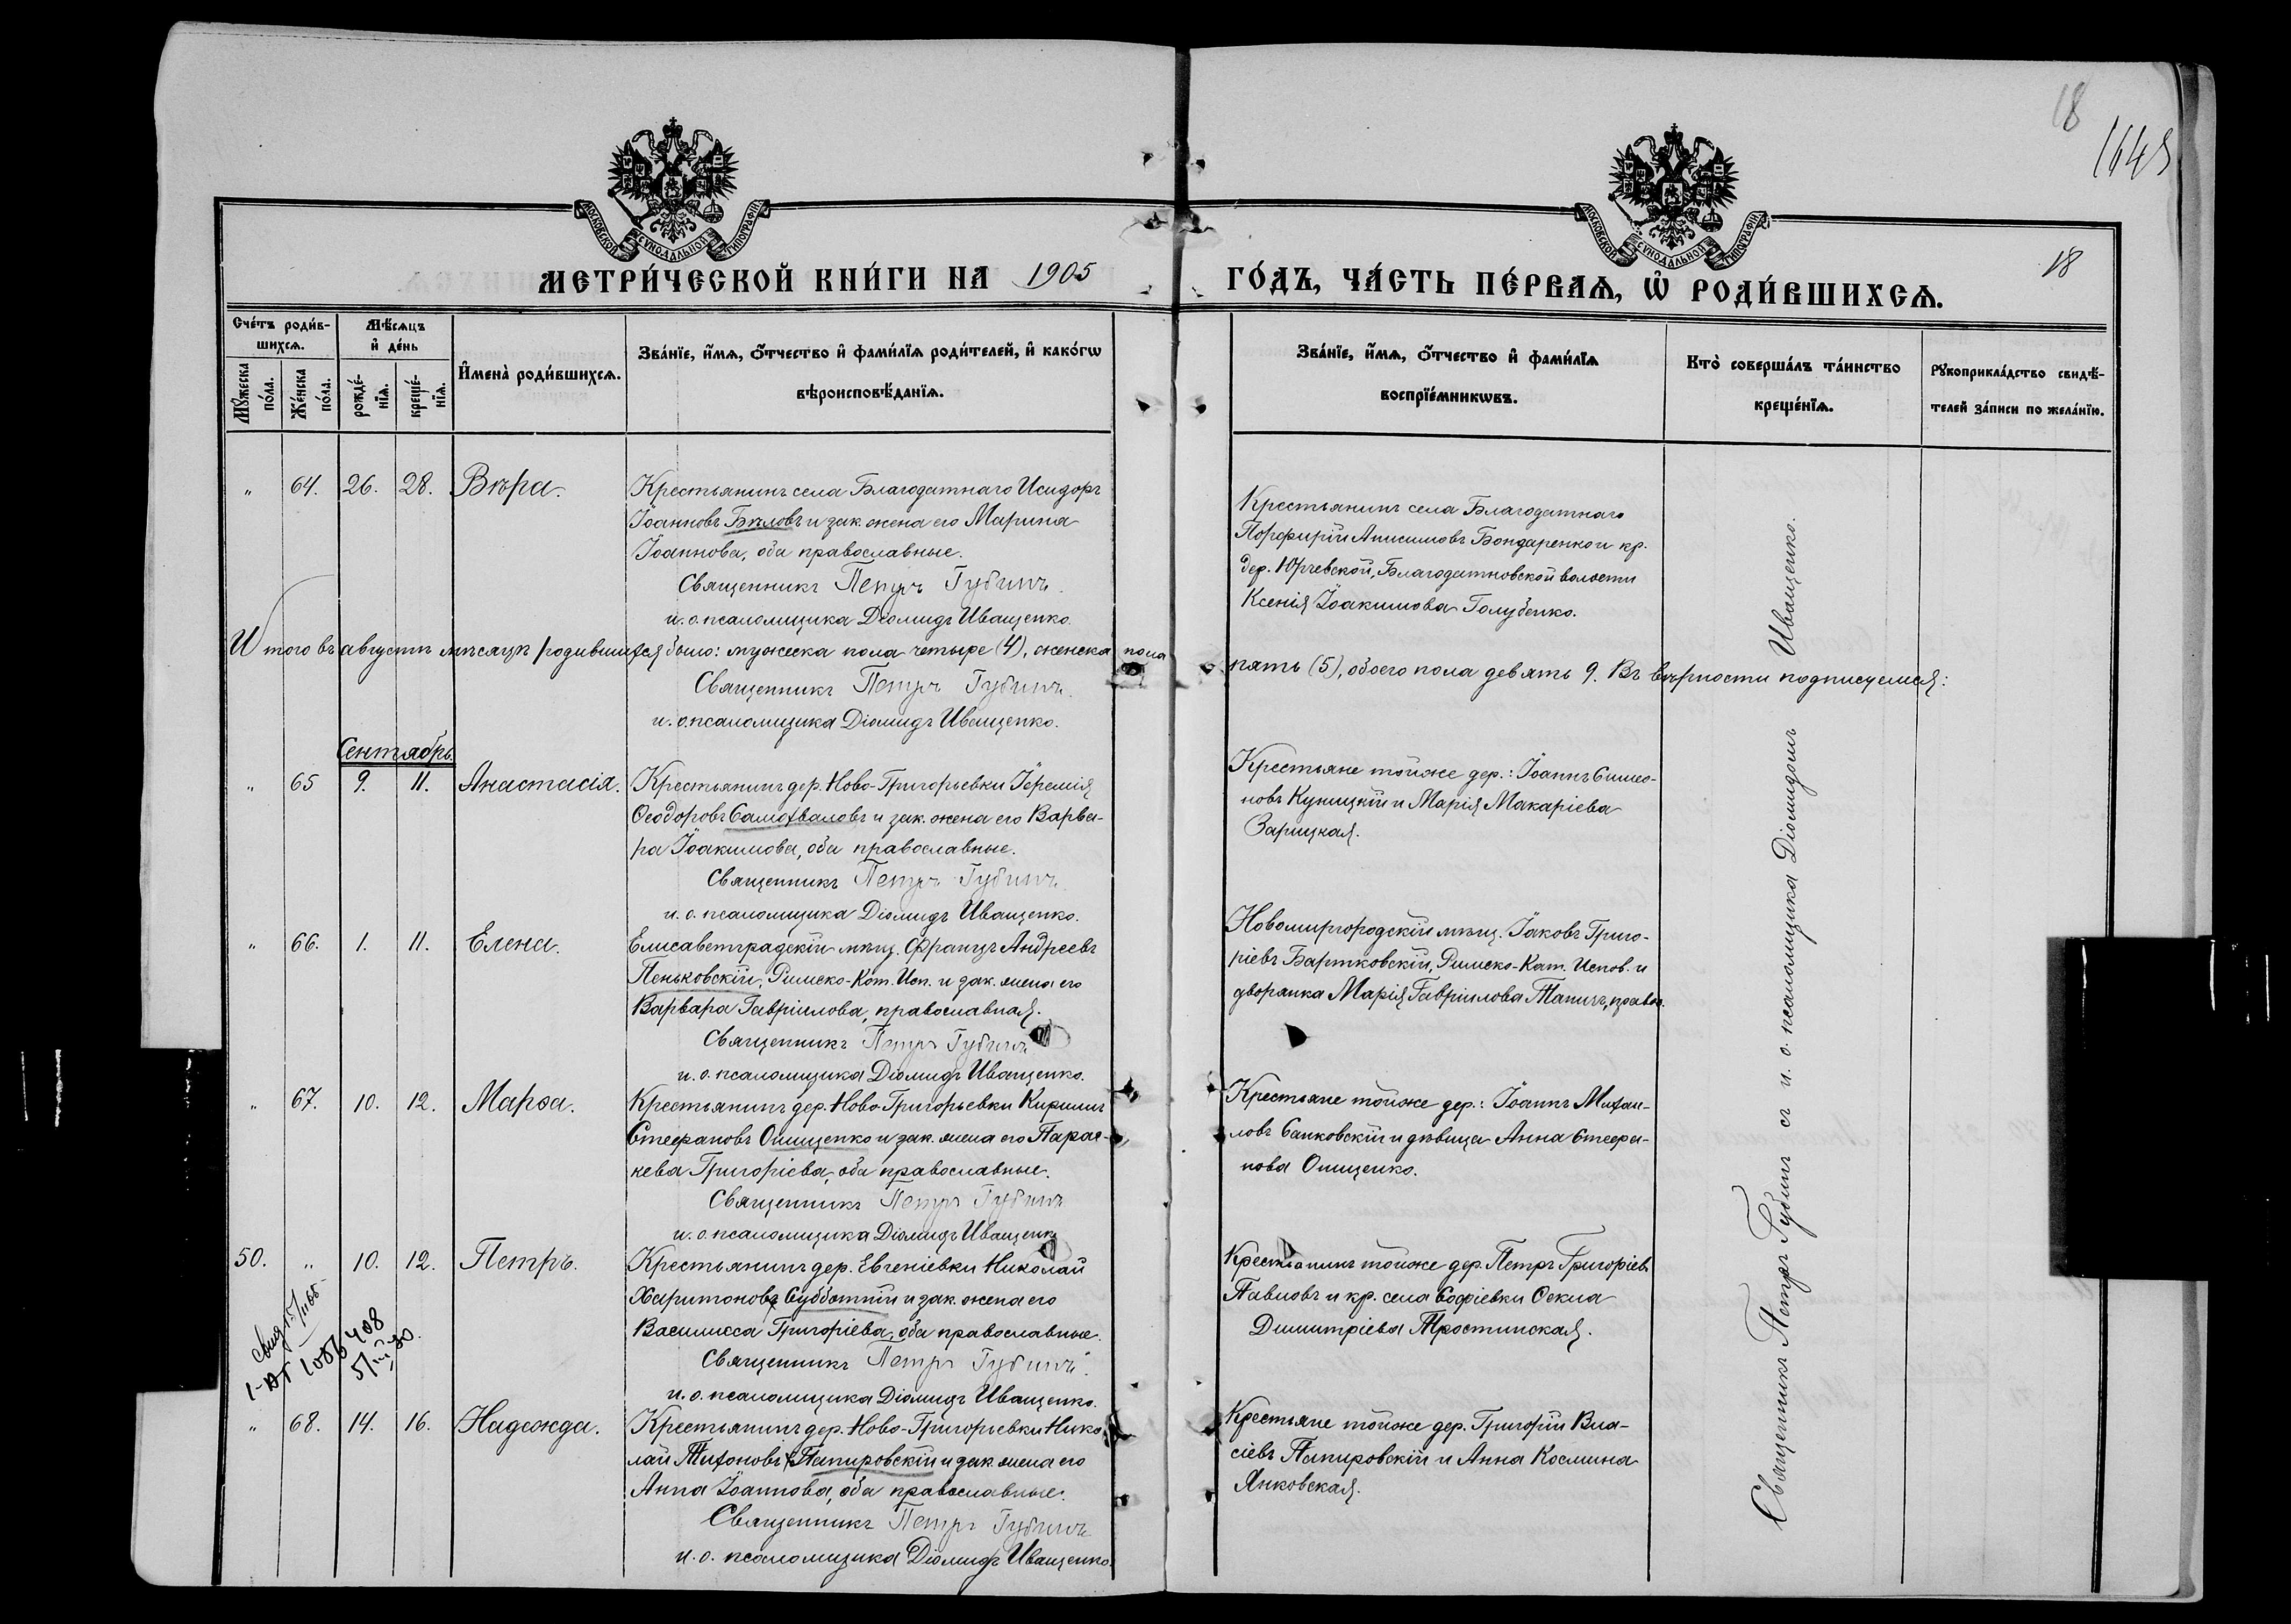 18
1648
18
МОСКОВСКОЙ СѴНОДАЛЬНОЙ ТИПОГРАФІИ
МОСКОВСКОЙ СѴНОДАЛЬНОЙ ТИПОГРАФІИ
МЕТРИ́ЧЕСКОЙ КНИ́ГИ НА 1905 ГО́ДЪ, ЧА́СТЬ ПЕ́РВАѦ, Ѡ҆ РОДИ́ВШИХСѦ.
Сче́тъ роди́в-
шихсѧ.
Мꙋ́жеска по́ла.
Же́нска по́ла.
Мѣ́сѧцъ
и҆ де́нь
рожде́-
нїѧ.
креще́-
нїѧ.
И҆мена̀ роди́вшихсѧ.
Зва́нїе, и҆́мѧ, ѻ҆́тчество и҆ фами́лїѧ роди́телей, и҆ како́гѡ
вѣроисповѣ́данїѧ.
Зва́нїе, и҆́мѧ, ѻ҆́тчество и҆ фами́лїѧ
воспрїе́мникѡвъ.
Кто̀ соверша́лъ та́инство
креще́нїѧ.
Рꙋкоприкла́дство свидѣ́-
телей за́писи по жела́нїю.
„ 64. 26. 28. Вѣра. Крестьянинъ села Благодатнаго Исидоръ
Іоанновъ Бѣловъ и зак. жена его Марина
Іоаннова, оба православные.
Священникъ Петръ Губинъ.
и. о. псаломщика Діомидъ Иващенко.
Крестьянинъ села Благодатнаго
Порфирій Анисимовъ Бондаренко и кр.
дер. Юрьевской, Благодатновской волости
Ксенія Іоакимова Голубенко.
Итого въ августѣ мѣсяцѣ родившихся было: мужеска пола четыре (4), женска пола пять (5), обоего пола девять 9. Въ вѣрности подписуемся:
Священникъ Петръ Губинъ.
и. о. псаломщика Діомидъ Иващенко.
Сентябрь.
„ 65 9. 11. Анастасія. Крестьянинъ дер. Ново-Григорьевки Іеремія
Ѳеодоровъ Самохваловъ и зак. жена его Варва-
ра Іоакимова, оба православные.
Священникъ Петръ Губинъ
и. о. псаломщика Діомидъ Иващенко.
Крестьяне тойже дер.: Іоаннъ Симео-
новъ Куницкій и Марія Макаріева
Зарицкая.
„ 66. 1. 11. Елена. Елисаветградскій мѣщ. Францъ Андреевъ
Пеньковскій, Римско-Кат. Исп. и зак. жена его
Варвара Гавріилова, православная.
Священникъ Петръ Губинъ
и. о. псаломщика Діомидъ Иващенко.
Новомиргородскій мѣщ. Іаковъ Григо-
ріевъ Бартковскій, Римско-Кат. Испов. и
дворянка Марія Гавріилова Танич, правос.
„ 67. 10. 12. Марѳа. Крестьянинъ дер. Ново-Григорьевки Кириллъ
Стефановъ Онищенко и зак. жена его Парас-
кева Григоріева, оба православные.
Священникъ Петръ Губинъ
и. о. псаломщика Діомидъ Иващенк
Крестьяне тойже дер.: Іоаннъ Михаи-
ловъ Санковскій и дѣвица Анна Стефа-
нова Онищенко.
50. „ 10. 12. Петръ. Крестьянинъ дер. Евгеніевки Николай
Харитоновъ Субботній и зак. жена его
Василисса Григоріева, оба православные.
Священникъ Петръ Губинъ.
и. о. псаломщика Діомидъ Иващенко.
Крестьянинъ тойже дер. Петръ Григоріевъ
Павловъ и кр. села Софіевки Ѳекла
Димитріева Тростинская.
„ 68. 14. 16. Надежда. Крестьянинъ дер. Ново-Григорьевки Нико
лай Тихоновъ Папировскій и зак. жена его
Анна Іоаннова, оба православные.
Священникъ Петръ Губинъ
и. о. псаломщика Діомидъ Иващенко.
Крестьяне тойже дер. Григорій Вла-
сіевъ Папировскій и Анна Космина
Янковская.
Священникъ Петръ Губинъ съ и. о. псаломщика Діомидомъ Иващенко.